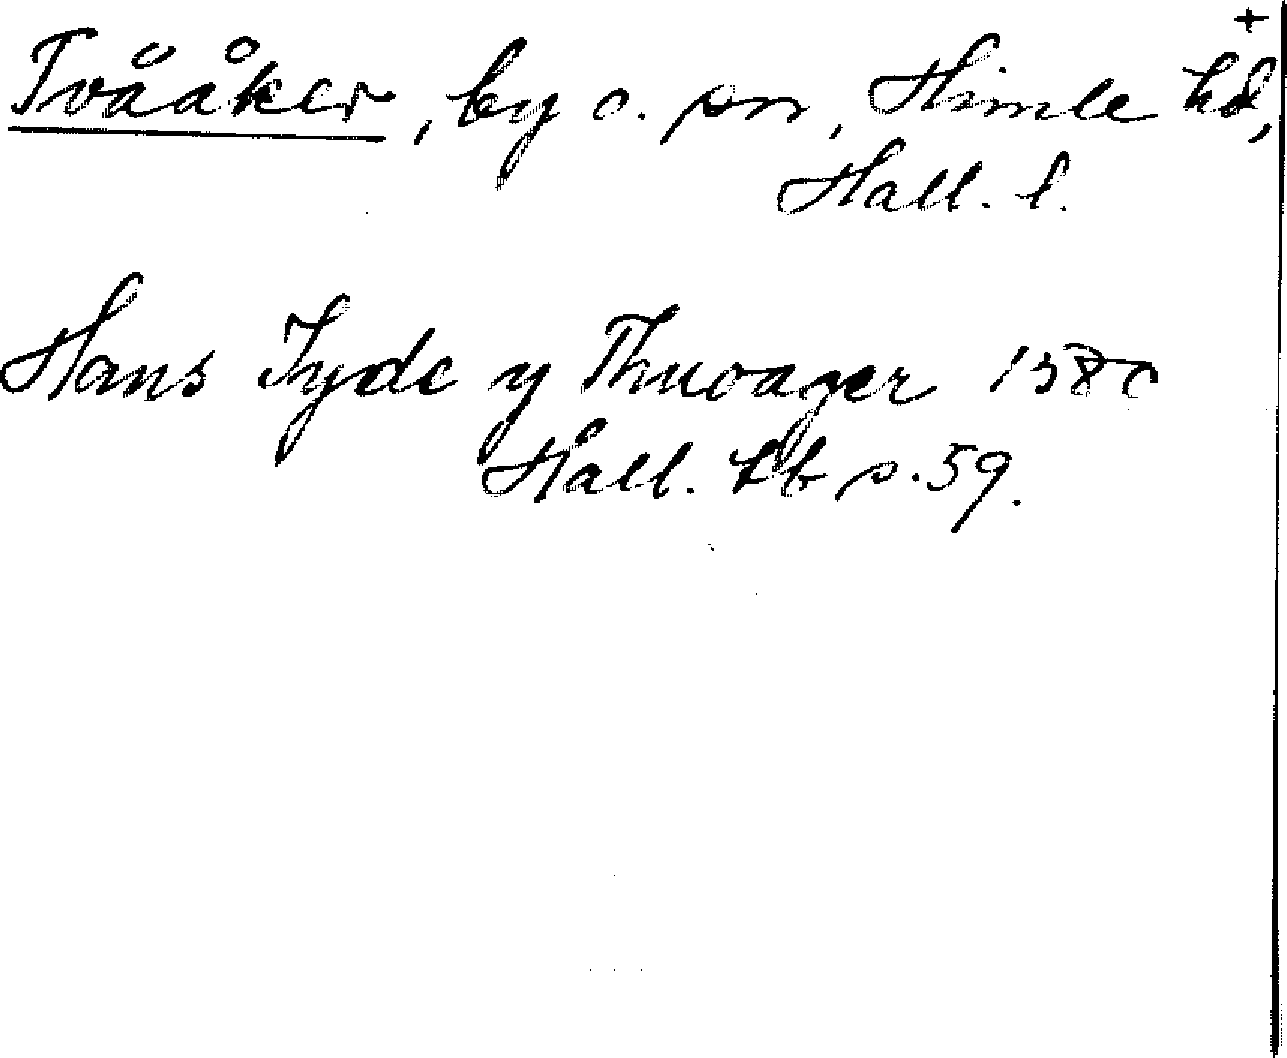 +
Tvååker, by o. sn, Himle hd,
Hall. l.
Hans Jyde y Thuoager 1580
Hall. Lb s. 59.